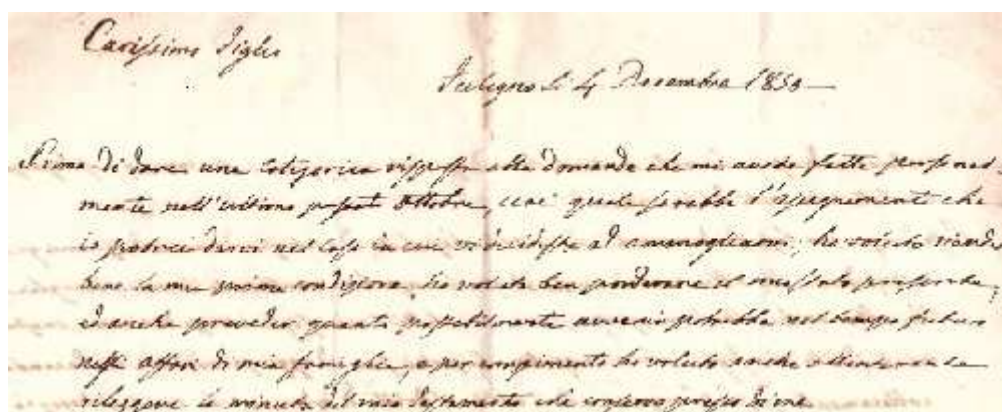 Carissimo Figlio
Foligno li 4 Decembre 1850
Prima di dare una categorica risposta alla domanda che mi avete fatta personal
mente nell'ultimo passato Ottobre, cioè quale sarebbe l'assegnamento che
io potrei darvi nel caso in cui vi decideste ad ammogliarvi, ho voluto
bene la mia prima condizione, ho voluto ben ponderare il mio stato presente,
ed anche preveder quanto possibilmente avvenir potrebbe nel tempo futuro
negli affari di mia famiglia, e per compimento ho voluto anche
rileggere la minuta del mio testamento che conservo presso di me